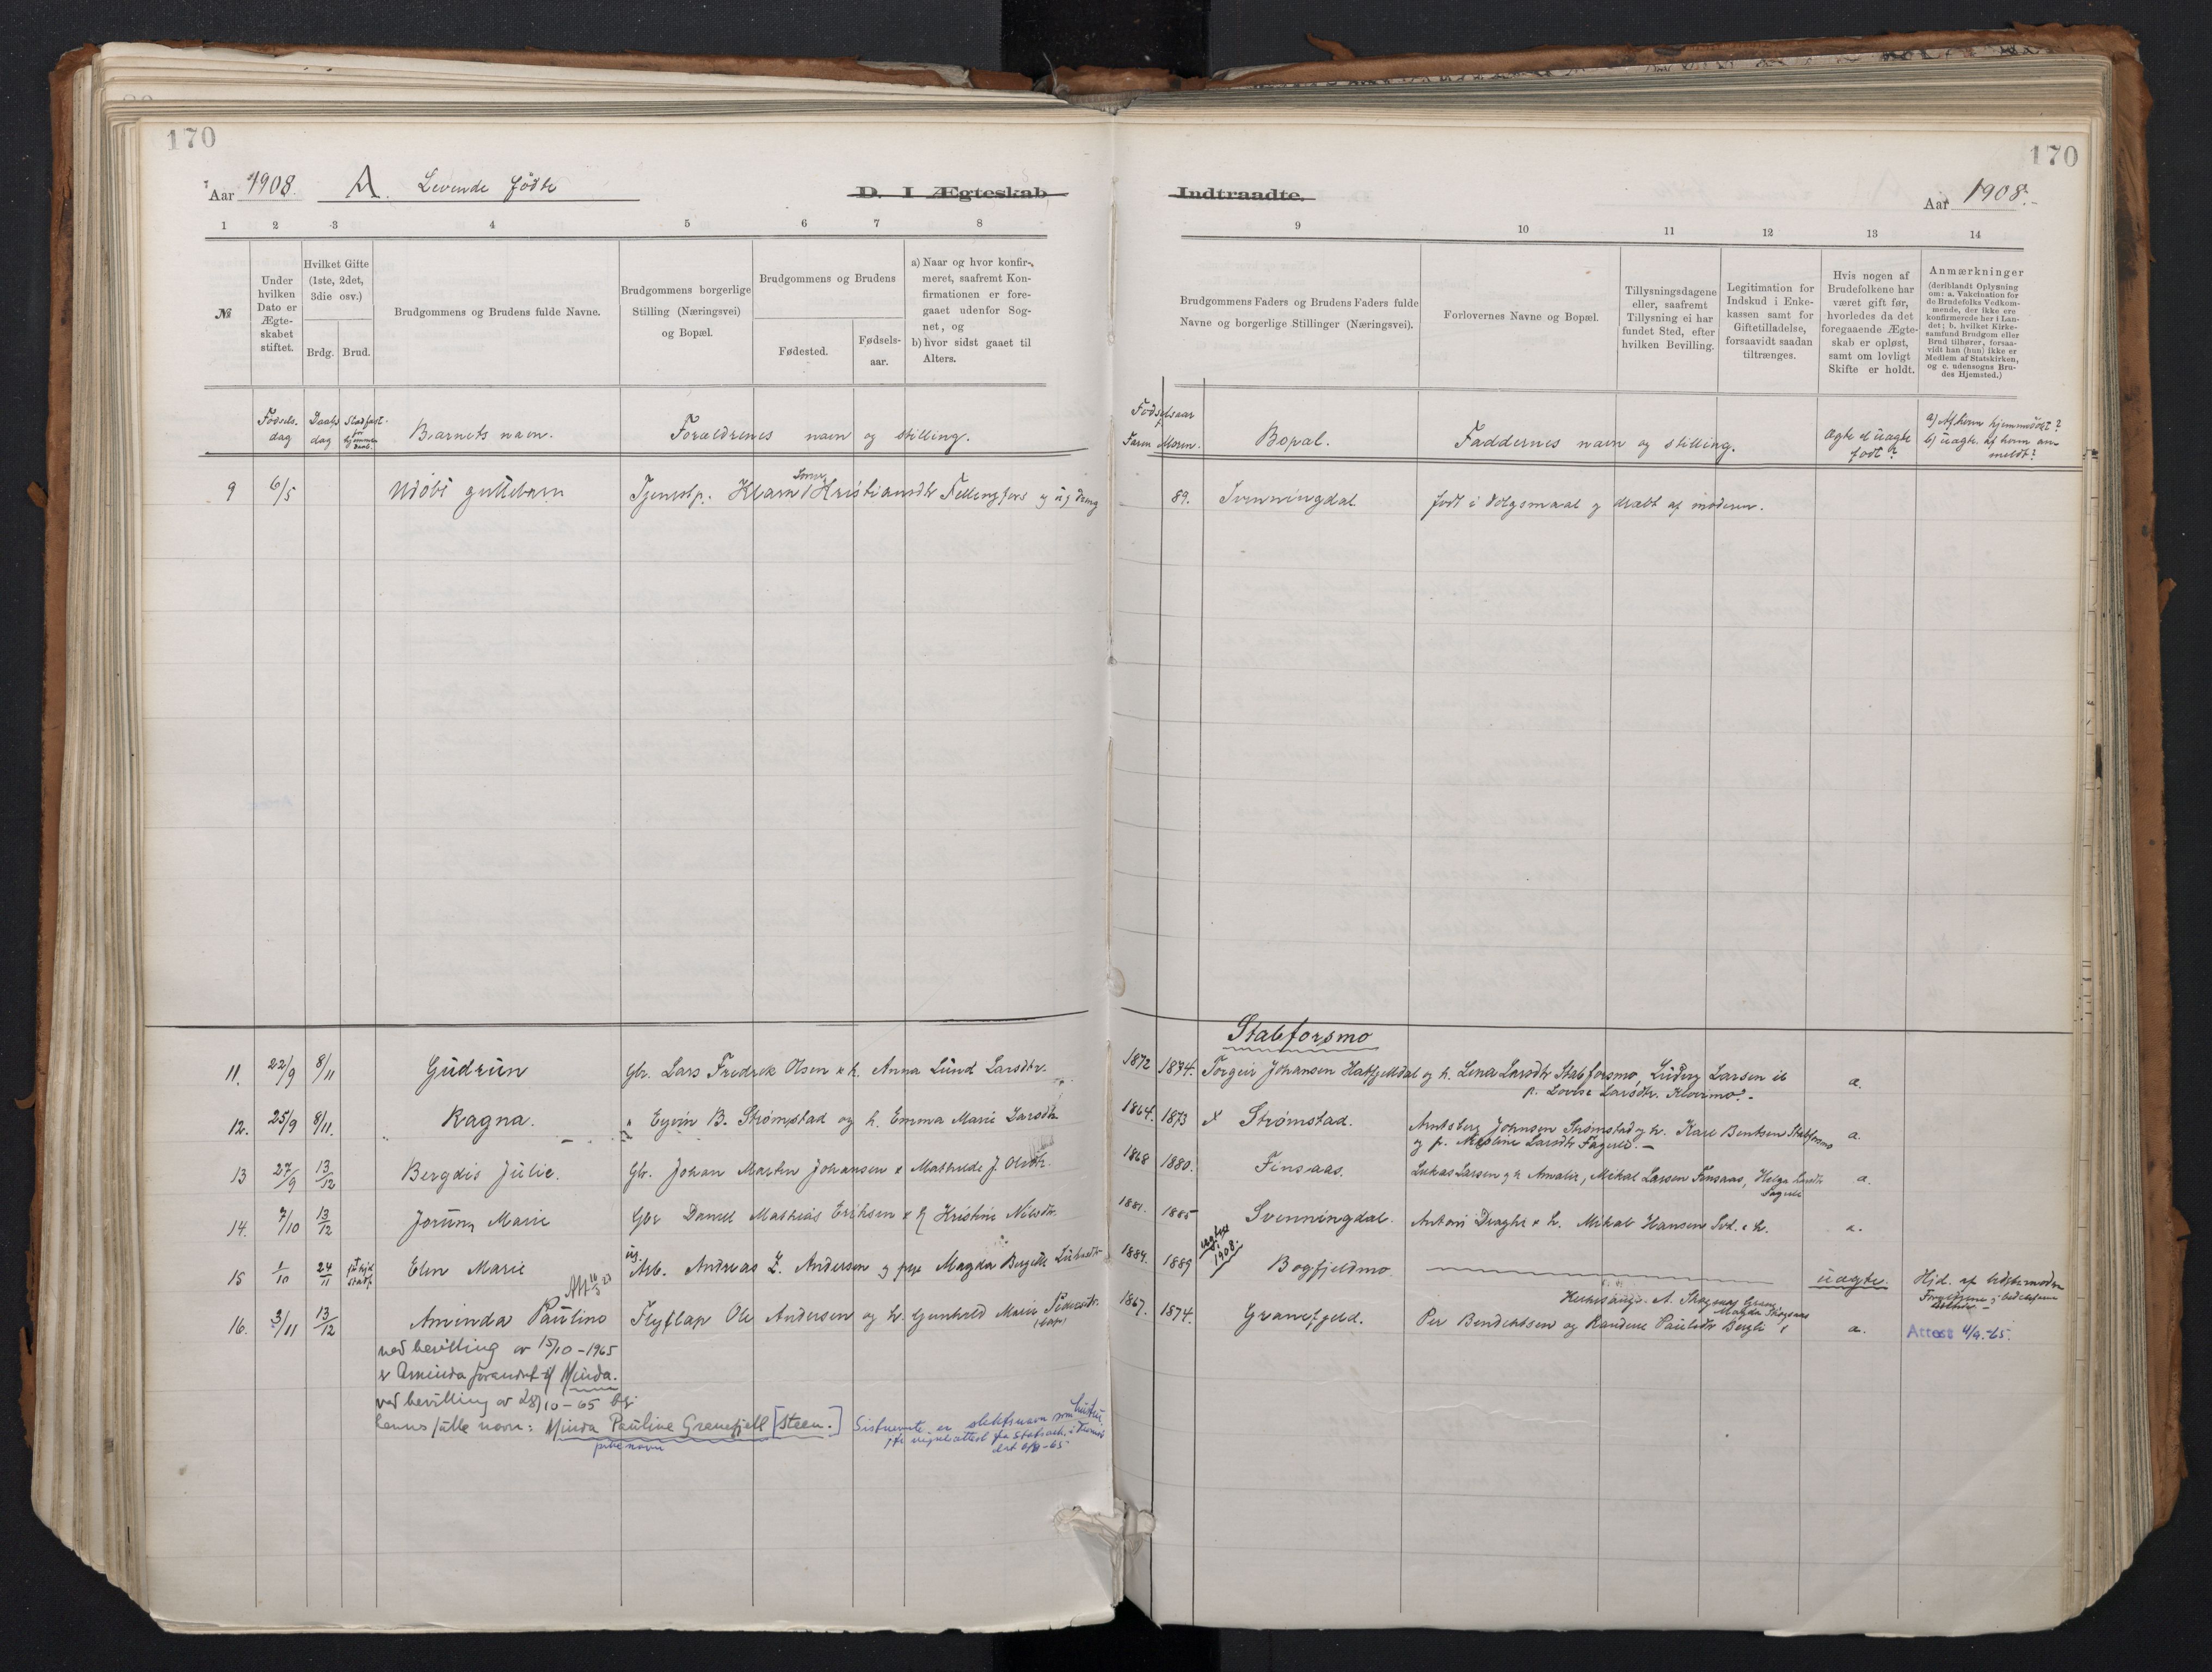 170
Aar 1908. A. Levende fødte D. I Ægteskab
1 2 3 4 5 6 7 8
№
Under hvilken Dato er Ægteskabet stiftet.
Hvilket Gifte (1ste, 2det, 3die osv.)
Brdg. Brud.
Brudgommens og Brudens fulde Navne.
Brudgommens borgerlige Stilling (Næringsvei) og Bopæl.
Brudgommens og Brudens
Fødested.
Fødsels-aar.
a) Naar og hvor konfir-
meret, saafremt Kon-
firmationen er fore-
gaaet udenfor Sog-
net, og
b) hvor sidst gaaet til
Alters.
Fødsels-dag
Daabs dag
Barnets navn.
Forældrenes navn og stilling.
9 6/5 Udøbt guttebarn Tjenestp. Klara Kristiansdtr Fellingfors og
11. 22/9 8/11 Gudrun Gbr. Lars Fredrik Olsen & h. Anna Lund Larsdtr.
12. 25/9 8/11. Ragna. " Eyvin B. Strømstad og h. Emma Marie Larsdtr
13 27/9 13/12 Bergdis Julie. Gbr. Johan Martin Johansen & Mathilde J. Olsdtr.
14. 7/10 13/12 Jorunn Marie Gbr Daniel Mathias Eriksen & h Kristine Nilsdtr.
15 1/10 24/11 Elen Marie ug. Arb. Andreas Z. Andersen og pige Magda
16. 3/11 13/12 Aminda Pauline Flyttlap Ole Andersen og h. Gunhild Marie Pedersdtr. (lap)
ved bevilling av 15/10-1965
er Aminda forandret til Minda.
ved bevilling av 28/10-65 blir
hennes fulle navn: Minda Pauline Granefjell [Steen.] Sistnevnte er slektsnavn som hustru
pikenavn
170
Indtraadte. Aar 1908.
9 10 11 12 13 14
Brudgommens Faders og Brudens Faders fulde
Navne og borgerlige Stillinger (Næringsvei).
Forlovernes Navne og Bopæl.
Tillysningsdagene
eller, saafremt
Tillysning ei har
fundet Sted, efter
hvilken Bevilling.
Legitimation for
Indskud i Enke-
kassen samt for
Giftetilladelse,
forsaavidt saadan
tiltrænges.
Hvis nogen af
Brudefolkene har
været gift før,
hvorledes da det
foregaaende Ægte-
skab er opløst,
samt om lovligt
Skifte er holdt.
Anmærkninger
(deriblandt Oplysning
om: a. Vakcination for
de Brudefolks Vedkom-
mende, der ikke ere
konfirmerede her i Lan-
det; b. hvilket Kirke-
samfund Brudgom eller
Brud tilhører, forsaa-
vidt han (hun) ikke er
Medlem af Statskirken,
og c. udensogns Bru-
des Hjemsted.)
Fødselsaar
Faren Moren.
Bopæl.
Faddernes navn og stilling.
Ægte el uægte født?
a) Af hvem hjemmedøbt?
b) uægte. af hvem an-
meldt?
89. Svenningdal. født i dølgsmaal og dræbt af moderen.
Stabforsmo
1872 1874. Torgeir Johansen Hatfjelldal og h. Lena Larsdtr Stabforsmo, Ludvig Larsen ib
p. Lovise Larsdtr. Kløvimo. - a.
1864. 1873 Strømstad. Arntsberg Johnsen Strømstad og h. Kari Bentsen Stabforsmo
og p. Larsdtr Fagerli. - a.
1868 1880. Finsaas. Lukas Larsen og h Amalie, Mikal Larsen Finsaas, Helga Larsdtr
Fagerli a.
1881. 1885 Svenningdal. Antoni Draghi & h. Mikal Hansen Svd. & h. a.
1884. 1889 uægte 1908. Bogfjeldmo. uægte. Hjd. af
1867. 1874. Granefjeld. Per Bendiktsen og Randine Paulsdtr Bergli a. Attest 4/9.-65.